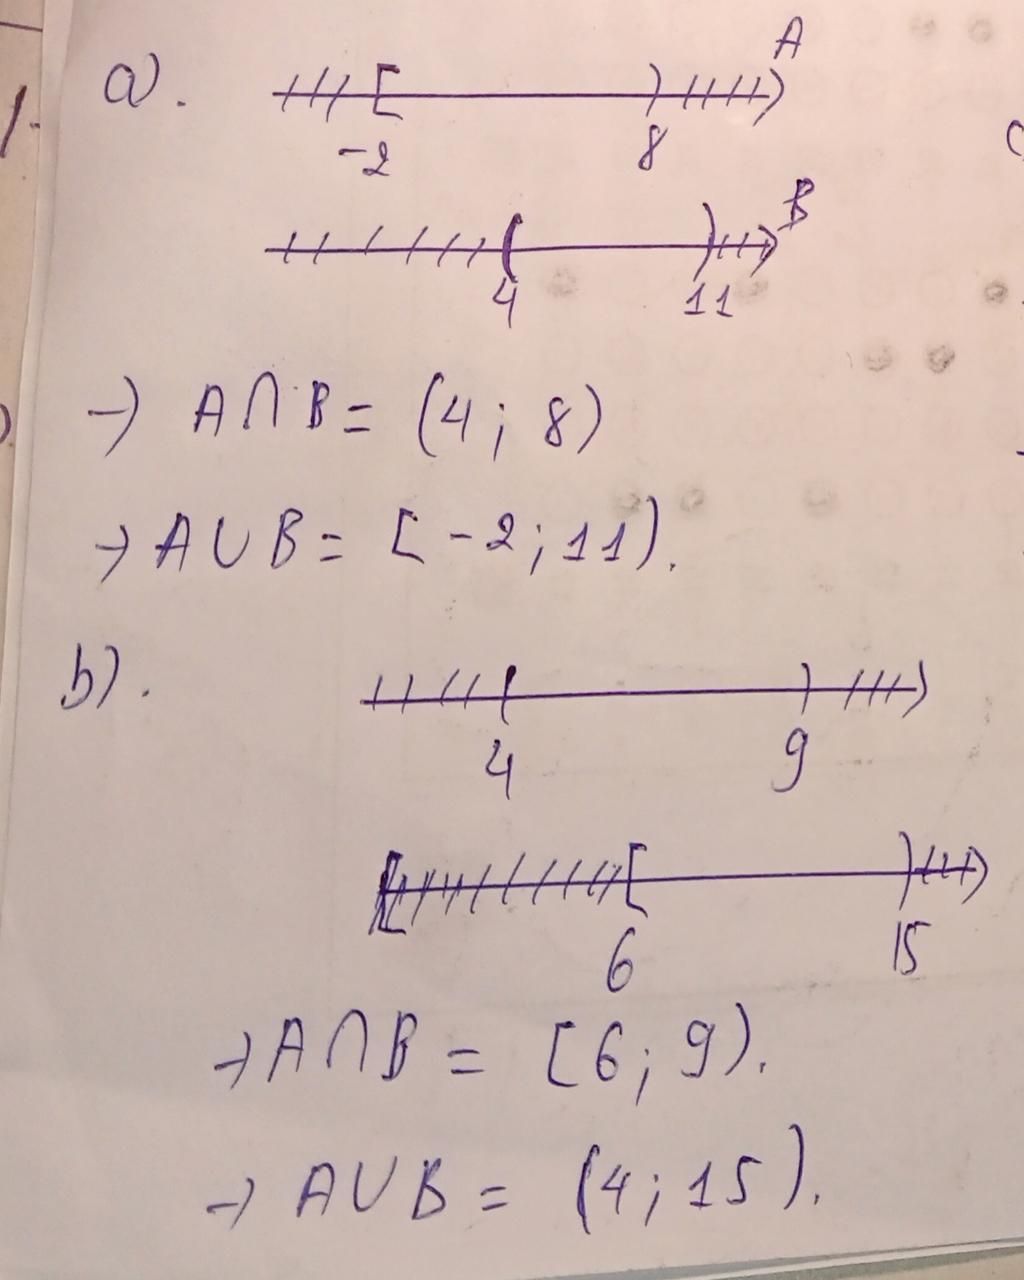 a).
A
-2 8
B
4 11
→ A∩B = (4; 8)
→ A∪B = [-2; 11).
b).
4 9
6 15
→ A∩B = [6; 9).
→ A∪B = (4; 15).